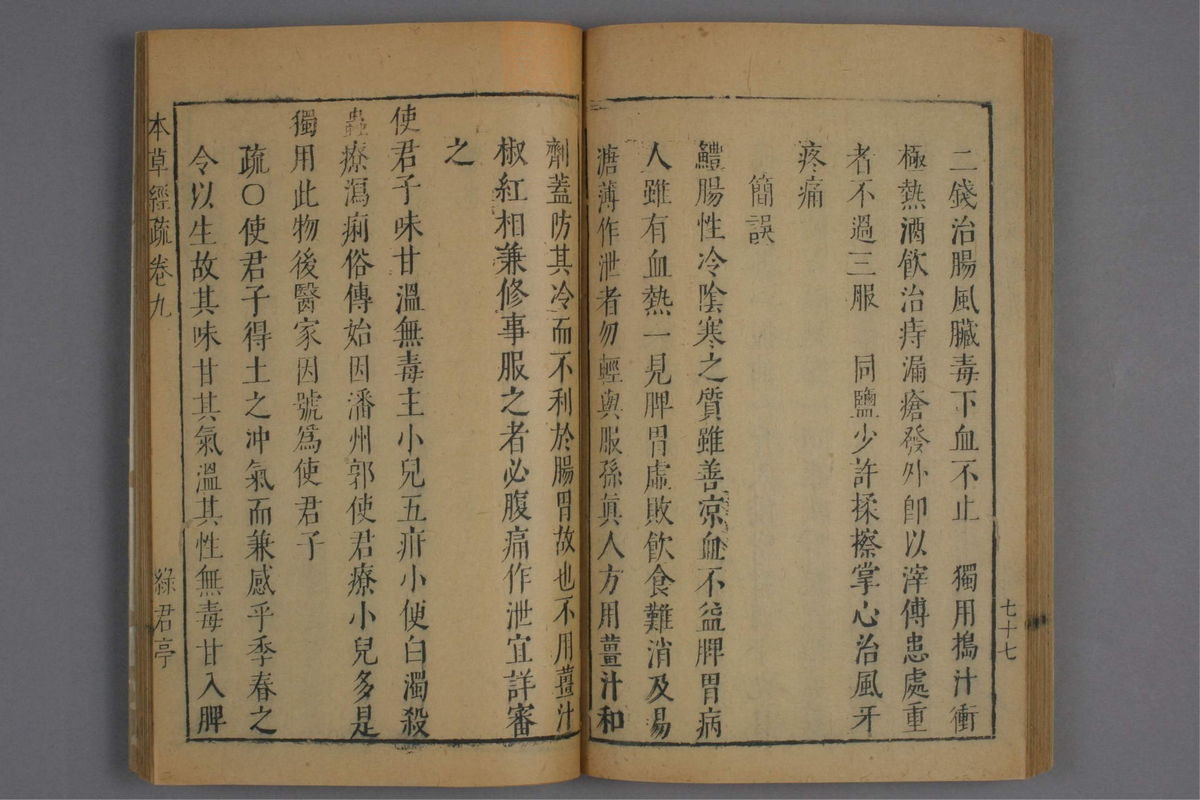 二錢治腸風臟毒下血不止　獨用搗汁衝
極熱酒飲治痔漏瘡發外卽以滓傅患處重
者不過三服　同鹽少許揉擦掌心治風牙
疼痛
簡誤
鱧腸性冷陰寒之質雖善涼血不益脾胃病
人雖有血熱一見脾胃虛敗飲食難消及易
溏薄作泄者勿輕與服孫眞人方用薑汁和
劑蓋防其冷而不利於腸胃故也不用薑汁
椒紅相兼修事服之者必腹痛作泄宜詳審
之
使君子味甘溫無毒主小兒五疳小便白濁殺
蟲療瀉痢俗傳始因潘州郭使君療小兒多是
獨用此物後醫家因號爲使君子
疏〇使君子得土之冲氣而兼感乎季春之
令以生故其味甘其氣溫其性無毒甘入脾
七十七
本草經疏卷九　綠君亭